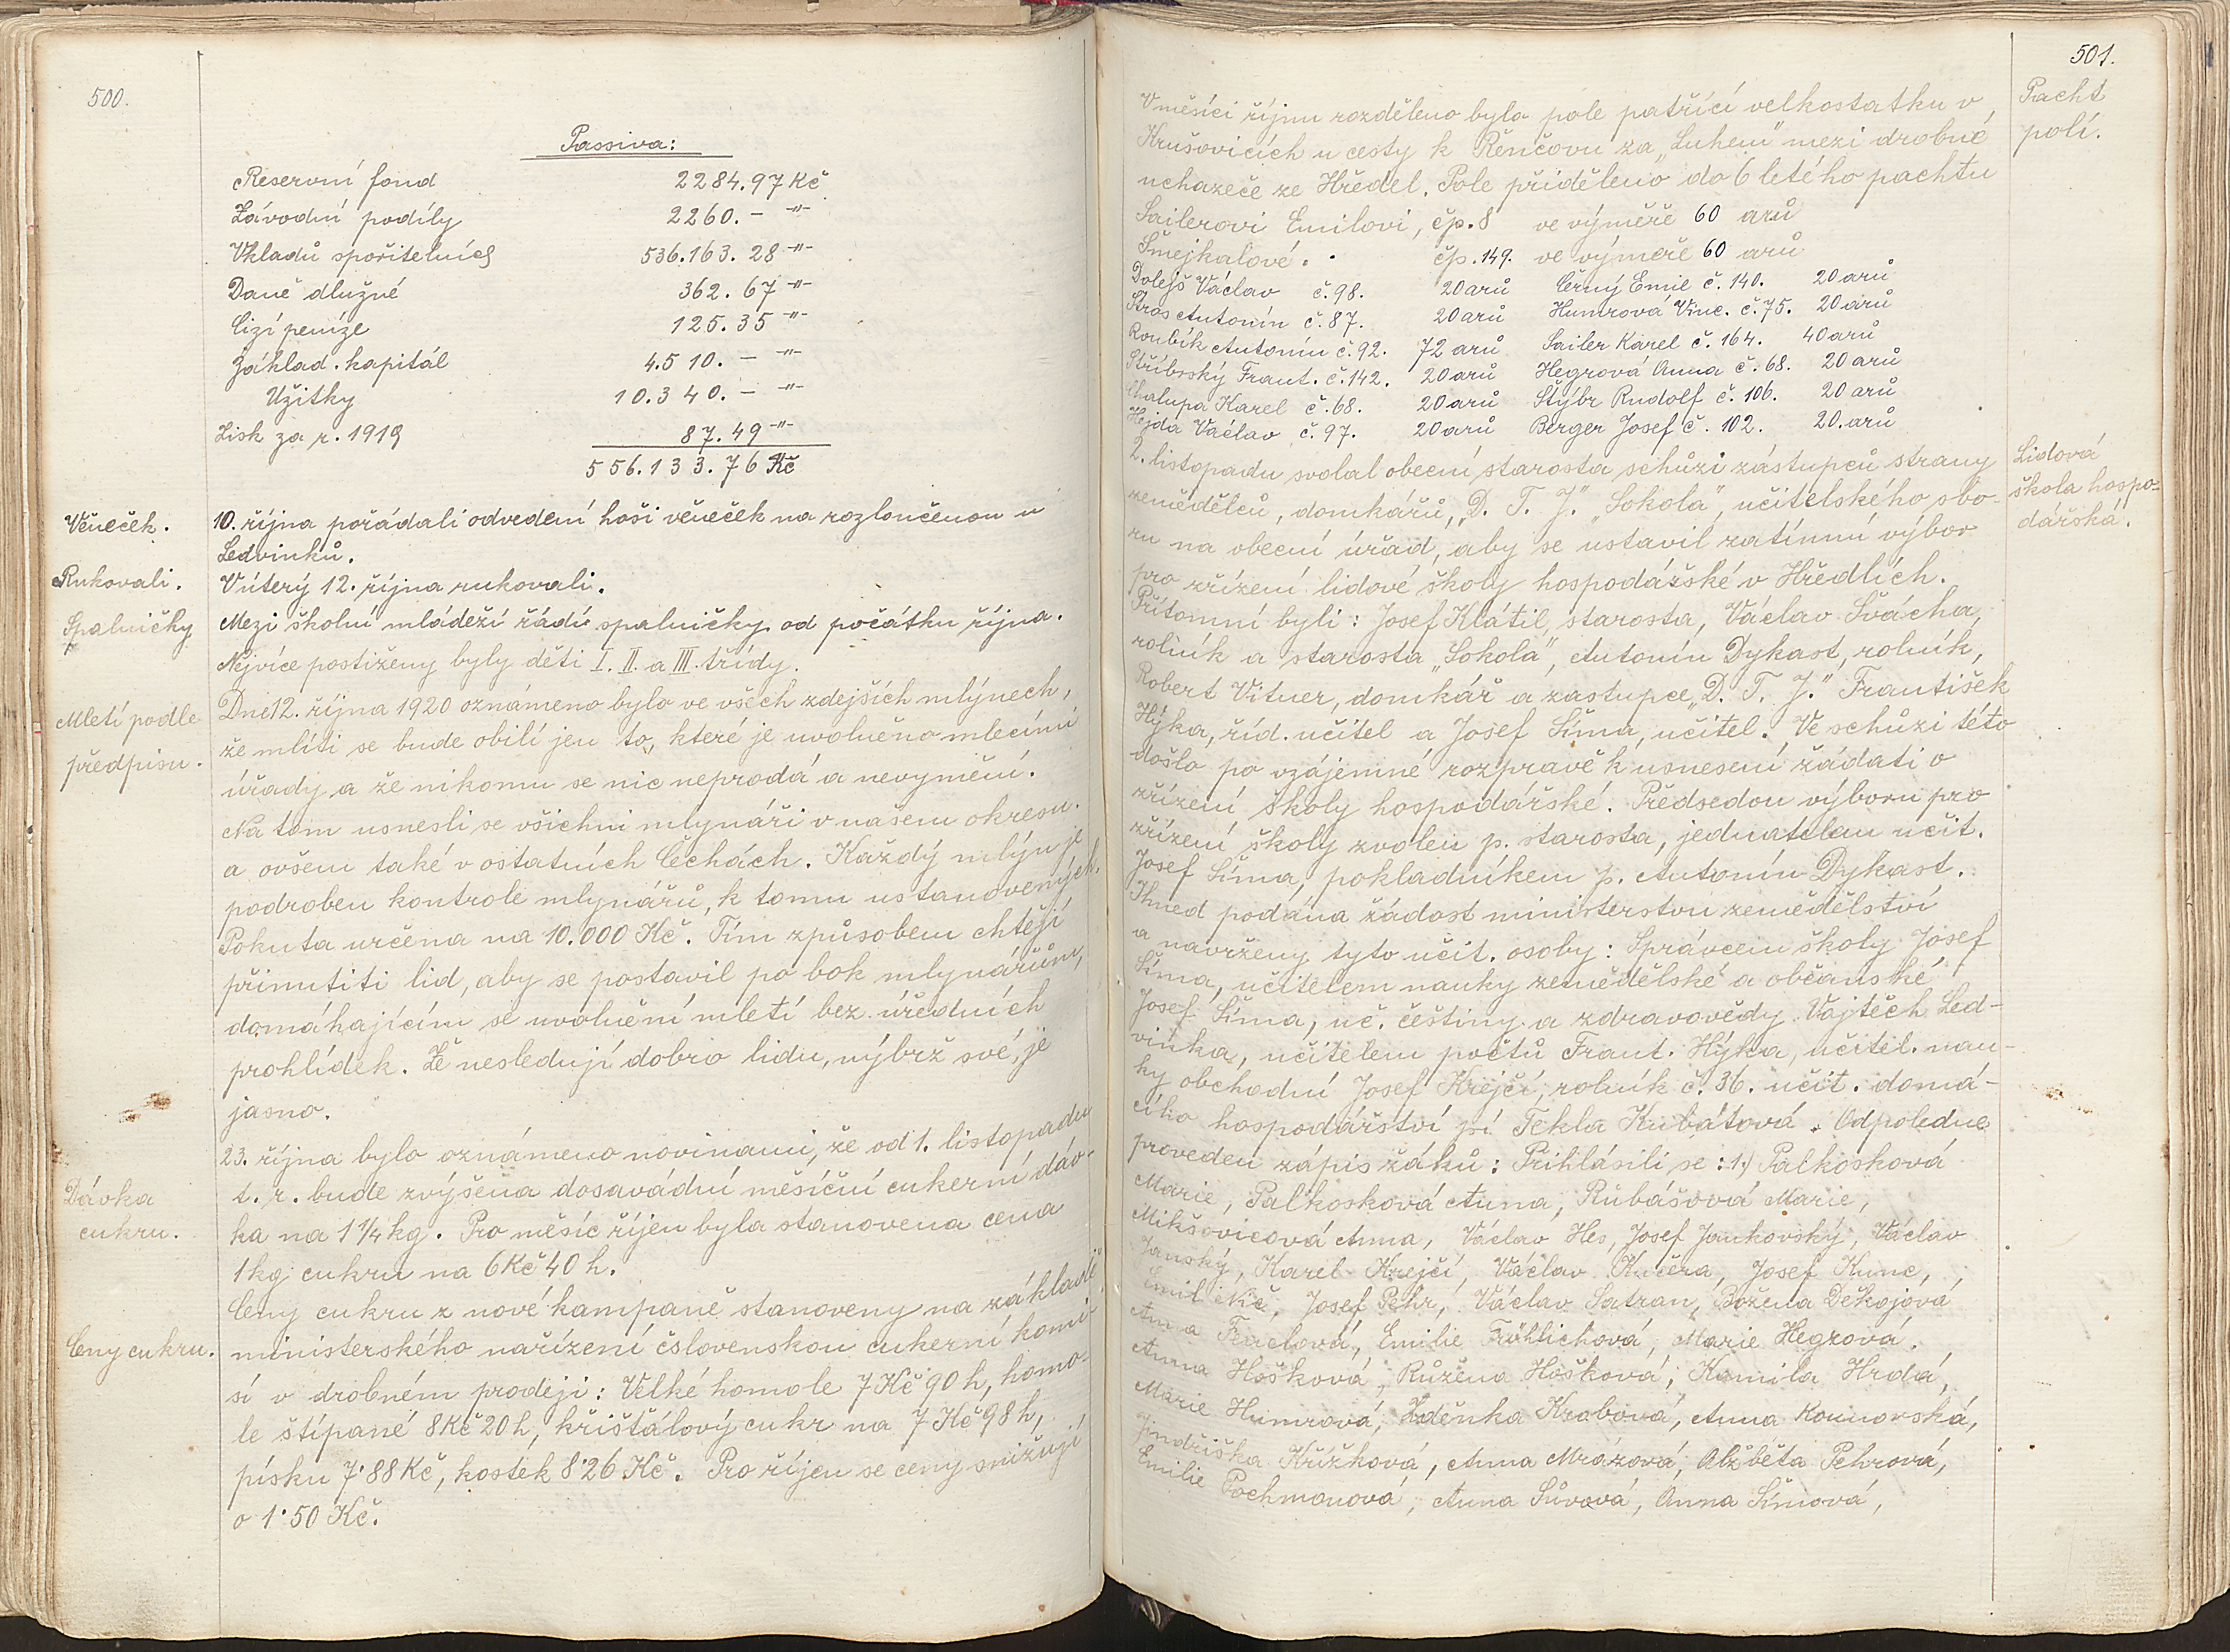 500.
Passiva:
Reservní fond 2284.97 Kč
Závodní podíly 2260.- -"-
Vkladů spořitelních 536.163.28 -"-
Daně dlužné 362.67 -"-
Cizí peníze 125.35 -"-
Základ. kapitál 4.510.- -"-
Užitky 10.340.- -"-
Zisk za r. 1919 87.49 -"-
556.133.76 Kč
Věneček.
10. října pořádali odvedení hoši věneček na rozloučenou u
Ledvinků.
Rukovali.
V úterý 12. října rukovali.
Spalničky
Mezi školní mládeží řádí spalničky od počátku října.
Nejvíce postiženy byly děti I. II. a III. třídy.
Mletí podle
předpisu.
Dne 12. října 1920 oznámeno bylo ve všech zdejších mlýnech,
že mlíti se bude obilí jen to, které je uvolněno mlecími
úřady a že nikomu se nic neprodá a nevymění.
Na tom usnesli se všichni mlynáři v našem okresu
a ovšem také v ostatních Čechách. Každý mlýn je
podroben kontrole mlynářů, k tomu ustanovených.
Pokuta určena na 10.000 Kč. Tím způsobem chtějí
přinutiti lid, aby se postavil po bok mlynářům,
domáhajícím se uvolnění mletí bez úředních
prohlídek. Že nesledují dobro lidu, nýbrž své, je
jasno.
Dávka
cukru.
23. října bylo oznámeno novinami, že od 1. listopadu
t. r. bude zvýšena dosavádní měsíční cukerní dáv-
ka na 1 1/4 kg. Pro měsíc říjen byla stanovena cena
1 kg cukru na 6 Kč 40 h.
Ceny cukru.
Ceny cukru z nové kampaně stanoveny na základě
ministerského nařízení čslovenskou cukerní komi-
sí v drobném prodeji: Velké homole 7 Kč 90 h, homo-
le štípané 8 Kč 20 h, křišťálový cukr na 7 Kč 98 h,
písku 7˙88 Kč, kostek 8˙26 Kč. Pro říjen se ceny snižují
o 1˙50 Kč.
501.
Pacht
polí.
V měsíci říjnu rozděleno bylo pole patřící velkostatku v
Krušovicích u cesty k Řenčovu za „Luhem" mezi drobné
uchazeče ze Hředel. Pole přiděleno do 6 letého pachtu
Sailerovi Emilovi, čp. 8 ve výměře 60 arů
Smejkalové . . čp. 149. ve výměře 60 arů
Dolejš Václav č. 98. 20 arů Černý Emil č. 140. 20 arů
Stros Antonín č. 87. 20 arů Humrová Vinc. č. 75. 20 arů
Roubík Antonín č. 92. 72 arů Sailer Karel č. 164. 40 arů
Stříbrský Frant. č. 142. 20 arů Hegrová Anna č. 68. 20 arů
Chalupa Karel č. 68. 20 arů Štýbr Rudolf č. 106. 20 arů
Hejda Václav č. 97. 20 arů Berger Josef č. 102. 20. arů
Lidová
škola hospo-
dářská.
2. listopadu svolal obecní starosta schůzi zástupců strany
zemědělců, domkářů, „D. T. J." „Sokola", učitelského sbo-
ru na obecní úřad, aby se ustavil zatímní výbor
pro zřízení lidové školy hospodářské v Hředlích.
Přítomni byli: Josef Klátil, starosta, Václav Švácha,
rolník a starosta „Sokola", Antonín Dykast, rolník,
Robert Vituer, domkář a zástupce „D. T. J." František
Hýka, říd. učitel a Josef Šíma, učitel. Ve schůzi této
došlo po vzájemné rozpravě k usnesení žádati o
zřízení školy hospodářské. Předsedou výboru pro
zřízení školy zvolen p. starosta, jednatelem učit.
Josef Šíma, pokladníkem p. Antonín Dykast.
Ihned podána žádost ministerstvu zemědělství
a navrženy tyto učit. osoby: Správcem školy Josef
Šíma, učitelem nauky zemědělské a občanské
Josef Šíma, uč. češtiny a zdravovědy Vojtěch Led-
vinka, učitelem počtů Frant. Hýka, učitel. nau-
ky obchodní Josef Krejčí, rolník č. 36. učit. domá-
cího hospodářství pí Tekla Kubátová. Odpoledne
proveden zápis žáků: Přihlásili se: 1.) Palkosková
Marie, Palkosková Anna, Rubášová Marie,
Mikšovicová Anna, Václav Hes, Josef Jankovský, Václav
Janský, Karel Krejčí, Václav Kučera, Josef Kunc,
Emil Nič, Josef Pehr, Václav Satran, Božena Děkojová
Anna Fenclová, Emilie Fröhlichová, Marie Hegrová,
Anna Hošková, Růžena Hošková, Kamila Hrdá,
Marie Humrová, Zděnka Krobová, Anna Kounovská,
Jindřiška Křížková, Anna Mrázová, Alžběta Pehrová,
Emilie Pochmonová, Anna Sůvová, Anna Šímová,